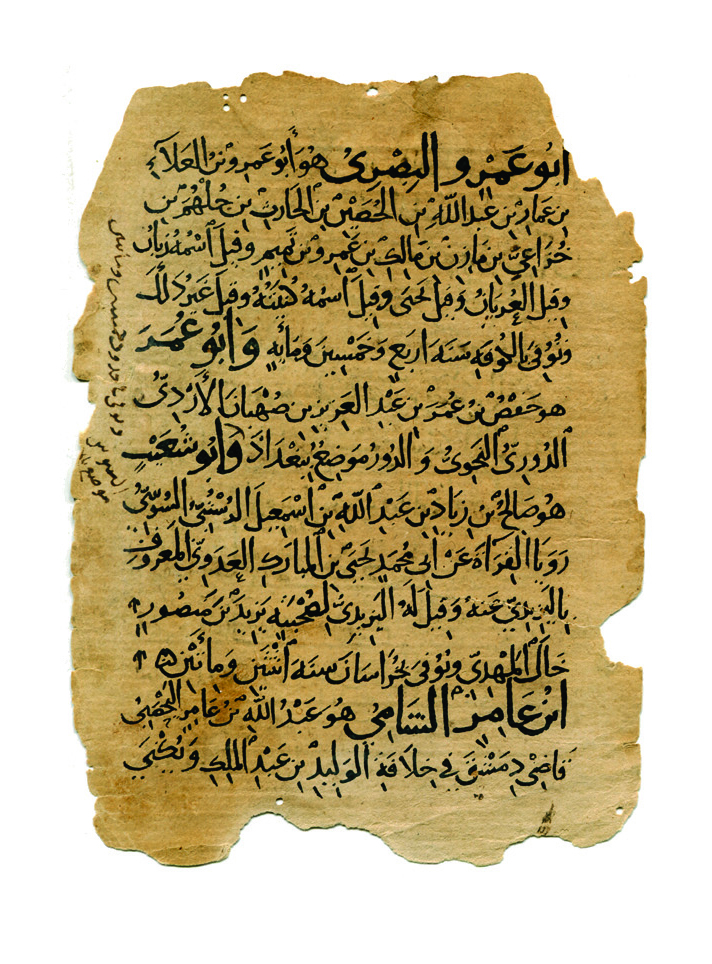 ابُو عَمْرو البِصْرِىُّ هُوَ أَبُو عَمرو بْنُ العَلَآءِ
بْنِ عَمارِ بْنِ عَبدِ اللّهِ بْنِ الحُصَيْنِ بْنِ الحَارِثِ بْنِ جُلْهُمِ بْنِ
خُزَاعِىِّ بْنِ مَازِنِ بْنِ مَالِكِ بْنِ عَمرِو بْنِ تَمِيمٍ وقِيلَ ٱسْمُهُ زَبانُ
وقيلَ العُريَانُ وقيل يَحيَى وقيلَ ٱسْمُهُ كُنيَتُهُ وقيلَ غَيرُ ذلكَ
وتُوُفىَ بالكُوفَهِ سَنَهَ اربَعٍ وَخَمْسِينَ وَمِأيَهٍ وَأبُو عُمَرَ
هو حَفْصُ بْنُ عُمَرَ بْنِ عَبْدِ العَزِيزِ بْنِ صُهْبَانَ الأَزْدِىُّ
ٱلدُّورِىُّ النَّحوِىُّ وَالدُّورُ مَوضِعٌ بِبَغْدَاذَ وَابُو شُعَيْبٍ
هو صَالحُ بْنُ زِيَادِ بْنِ عَبدِ اللّهِ بْنِ اسْمَعِيلَ الرُّسْتُبِىُّ السُّوسِىُّ
رَوَيَا القِرَآةَ عَنْ ابى مُحَمدٍ يَحيَى بْنِ المبَارَكِ العَدَوِىِّ المعرُوفِ
بِاليَزيدِىِّ عَنهُ وَقِيلَ لَهُ اليَزِيدِىُّ لِصُحْبَتِهِ يَزِيدَ بْنَ مَنصُورٍ
خَالَ المَهْدِىِّ وتُوُفىَ بخُرَاسَانَ سَنَهَ ٱثْنَتَينِ وَمِأتَيْنِ
ابْنُ عَامِرٍ الشَّامِىُّ هُوَ عَبْدُ اللّهِ بْنُ عَامِرٍ اليَحْصُبِىُّ
قَاضِى دِمَشْقَ فِى خِلَافَةِ الوَلِيدِ بْنِ عَبْدِ المَلِكِ وَيُكْنَى